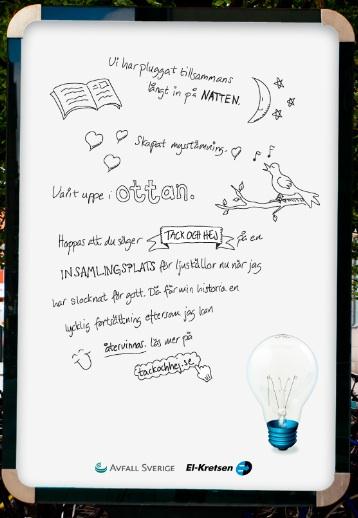 Vi har pluggat tillsammans
långt in på NATTEN.
Skapat mysstämning.
Varit uppe i ottan.
Hoppas att du säger TACK OCH HEJ på en
INSAMLINGSPLATS för ljuskällor nu när jag
har slocknat för gott. Då får min historia en
lycklig fortsättning eftersom jag kan
återvinnas. Läs mer på
tackochhej.se
AVFALL SVERIGE El-Kretsen